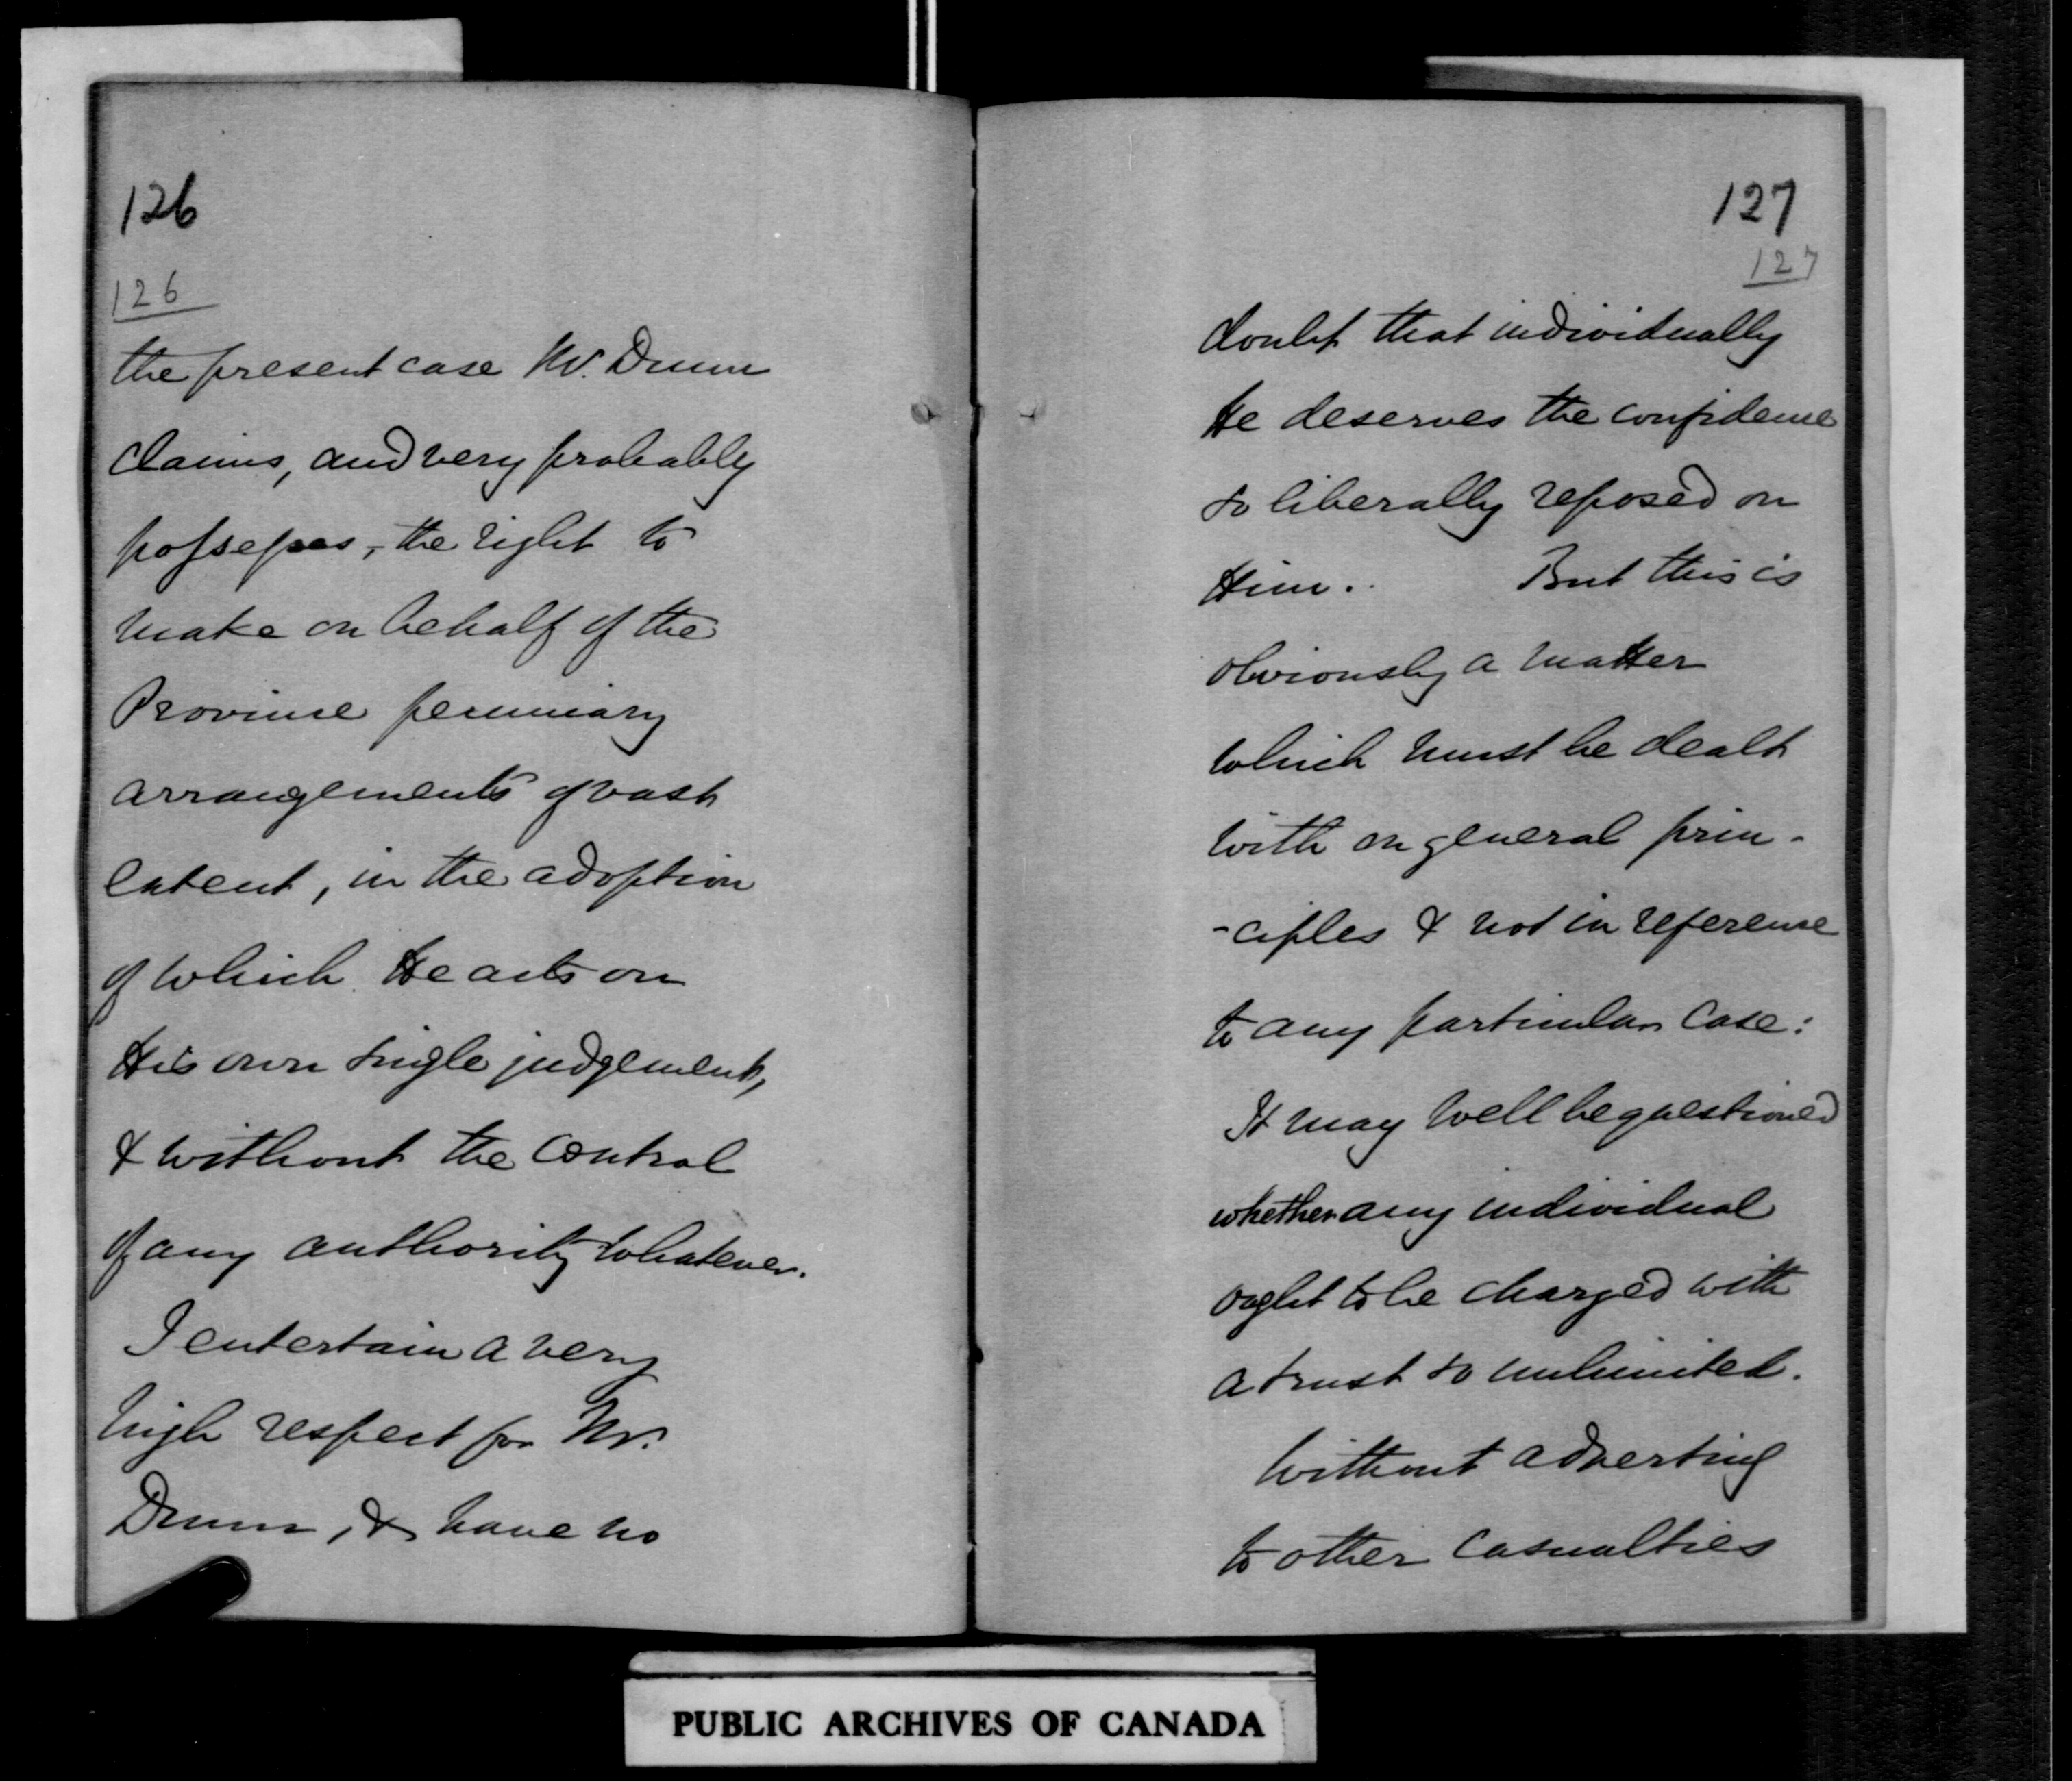 126
126
the present case Mr. Dunn
claims, and very probably
possesses, the right to
make on behalf of the
Province pecuniary
arrangements of vast
extent, in the adoption
of which He acts on
His own single judgement,
& without the control
of any authority whatever.
I entertain a very
high respect for Mr.
Dunn, & have no
127
127
doubt that individually
He deserves the confidence
so liberally reposed on
Him. But this is
obviously a matter
which must be dealt
with on general prin-
-ciples & not in reference
to any particular case:
It may well be questioned
whether any individual
ought to be charged with
a trust so unlimited.
Without adverting
to other casualties
PUBLIC ARCHIVES OF CANADA